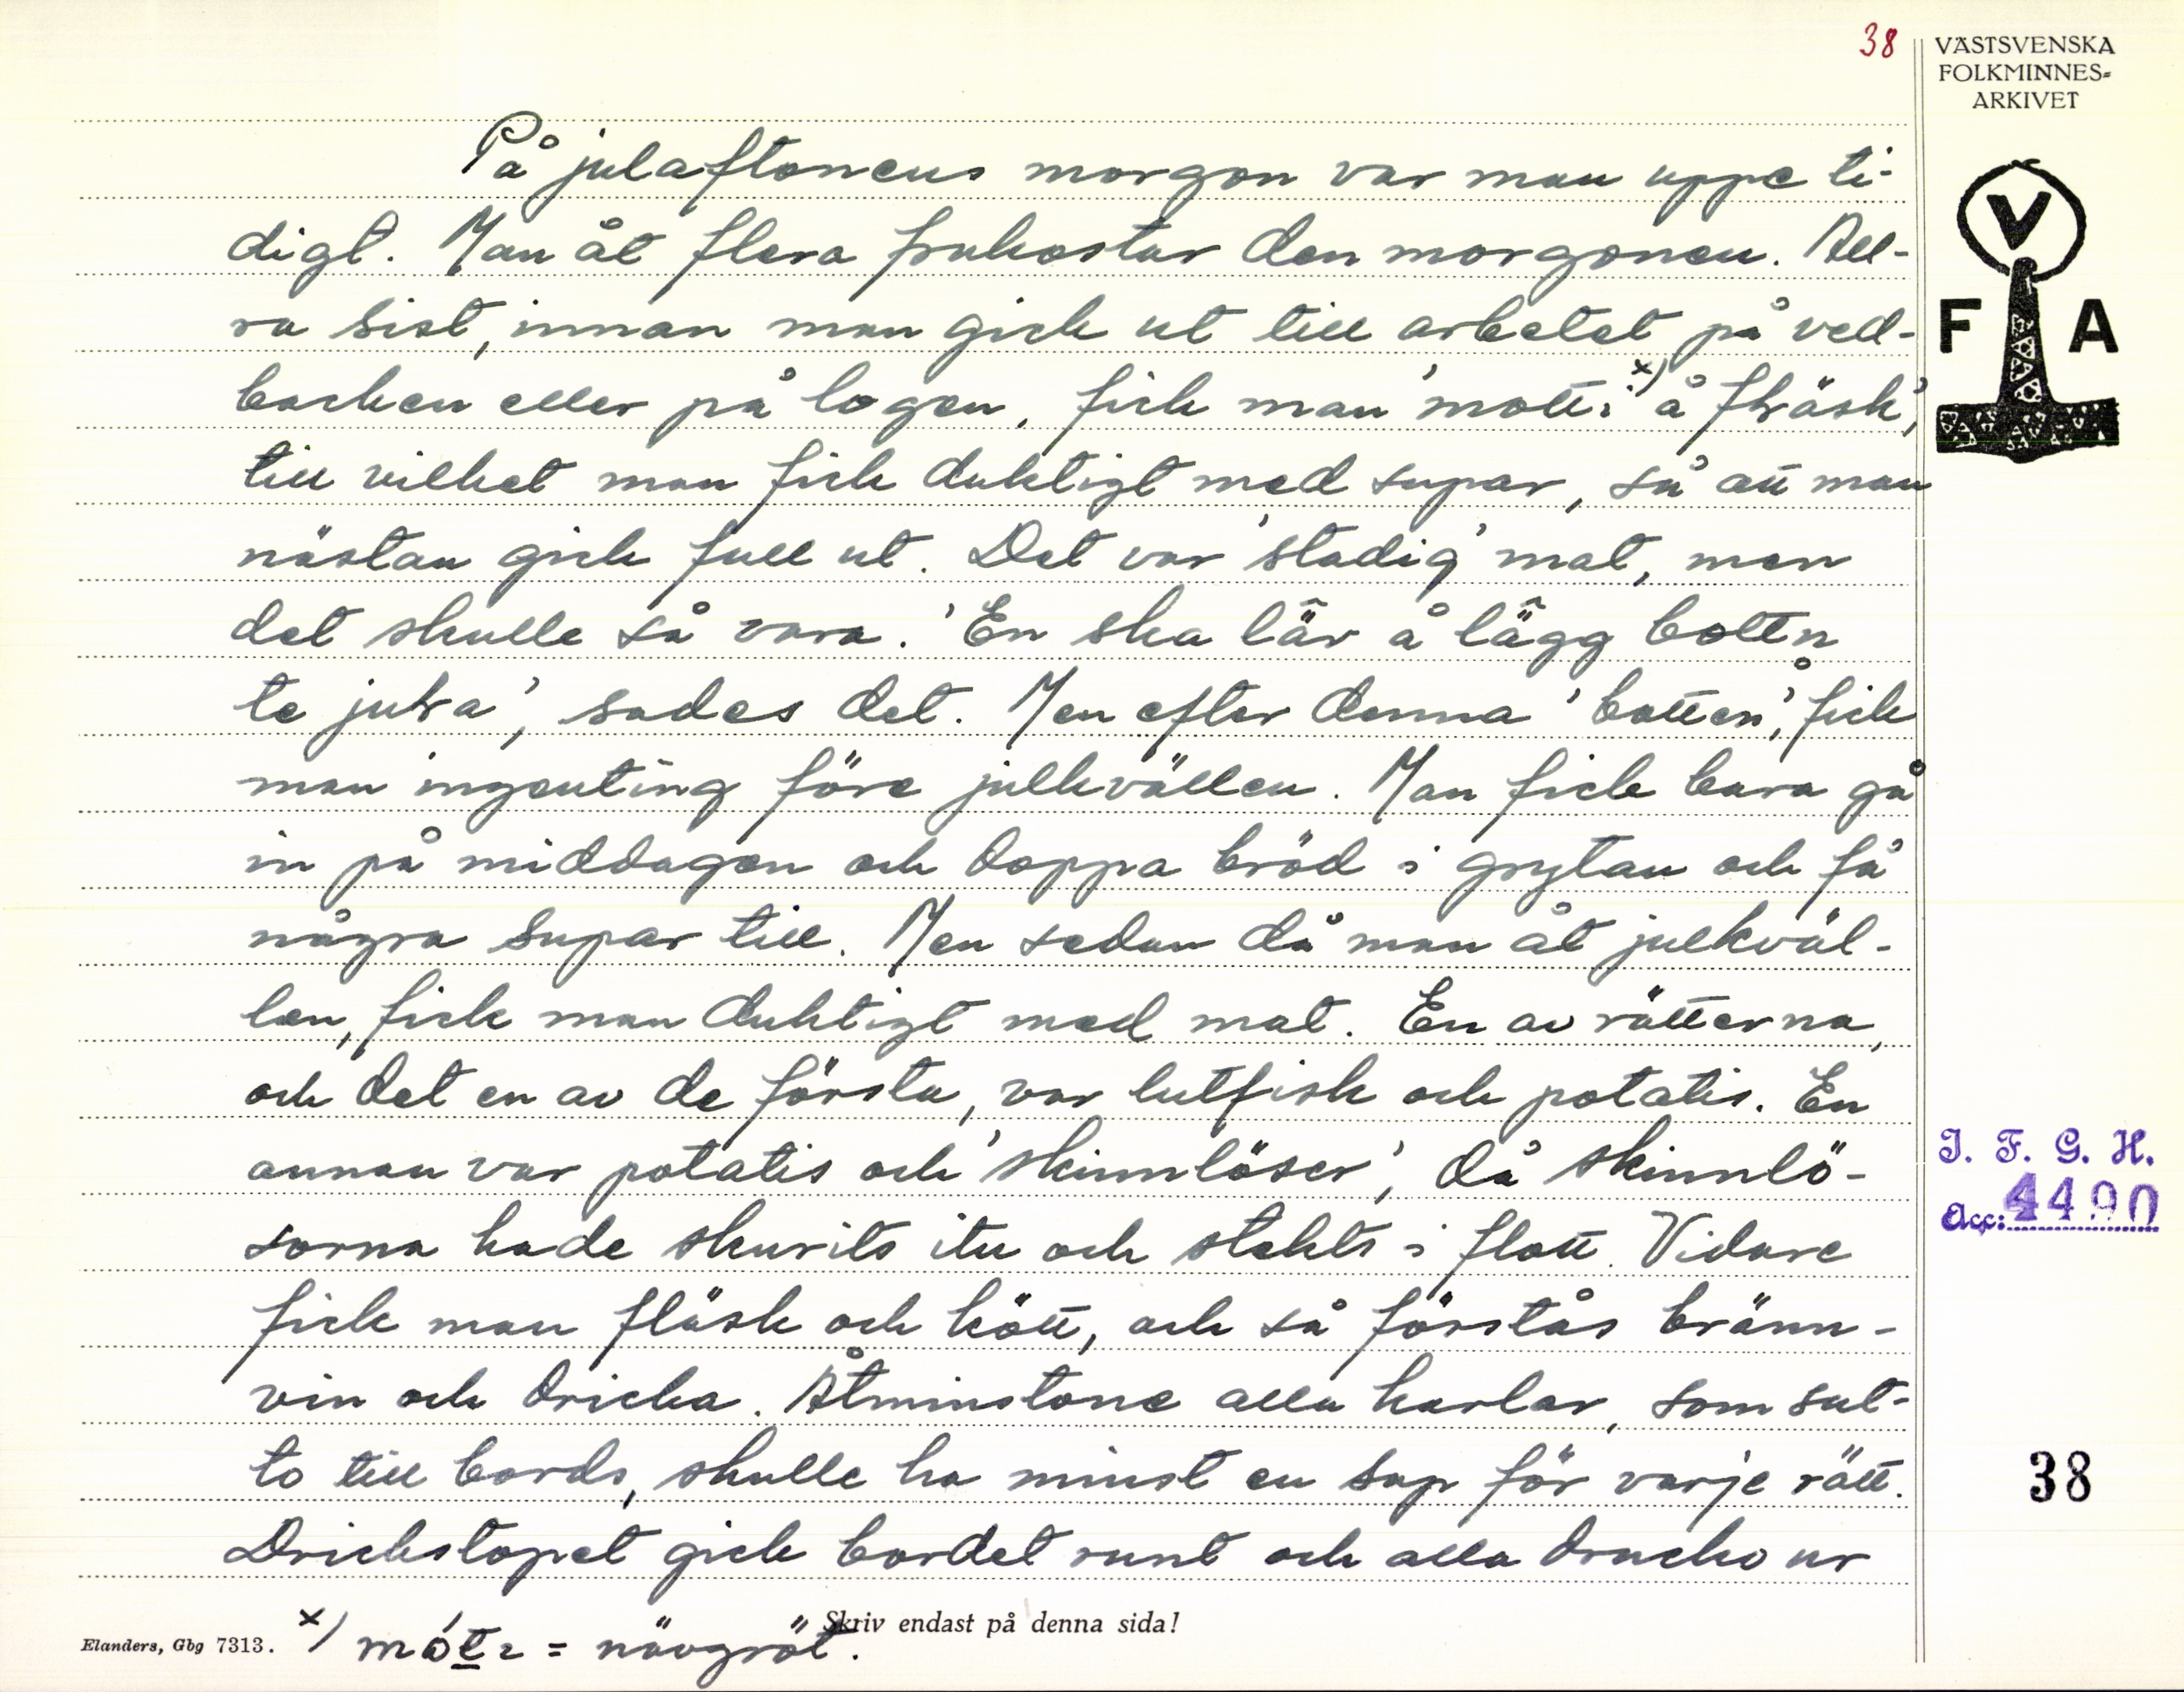 38
VÄSTSVENSKA
FOLKMINNES-
ARKIVET
V
F A
På julaftonens morgon var man uppe ti-
digt. Man åt flera frukostar den morgonen. All-
ra sist, innan man gick ut till arbetet på ved-
backen eller på logen, fick man 'motti x) å fḷäsk',
till vilket man fick duktigt med supar, så att man
nästan gick full ut. Det var 'stadig' mat, men
det skulle så vara. 'En ska lär å lägg bott'n
te juḷa', sades det. Men efter denna 'botten', fick
man ingenting före julkvällen. Man fick bara gå
in på middagen och doppa bröd i grytan och få
några supar till. Men sedan då man åt julkväl-
len, fick man duktigt med mat. En av rätterna,
och det en av de första, var lutfisk och potatis. En
annan var potatis och 'skinnlöser', då skinnlö-
serna hade skurits itu och stekts i flott. Vidare
fick man fläsk och kött, och så förstås bränn-
vin och dricka. Åtminstone alla karlar, som sut-
to till bords, skulle ha minst en sup för varje rätt.
Drickstopet gick bordet runt och alla drucko ur
I. F. G. H.
Acc: 4490
38
Skriv endast på denna sida!
Elanders, Gbg 7313.
x) = nävgröt.